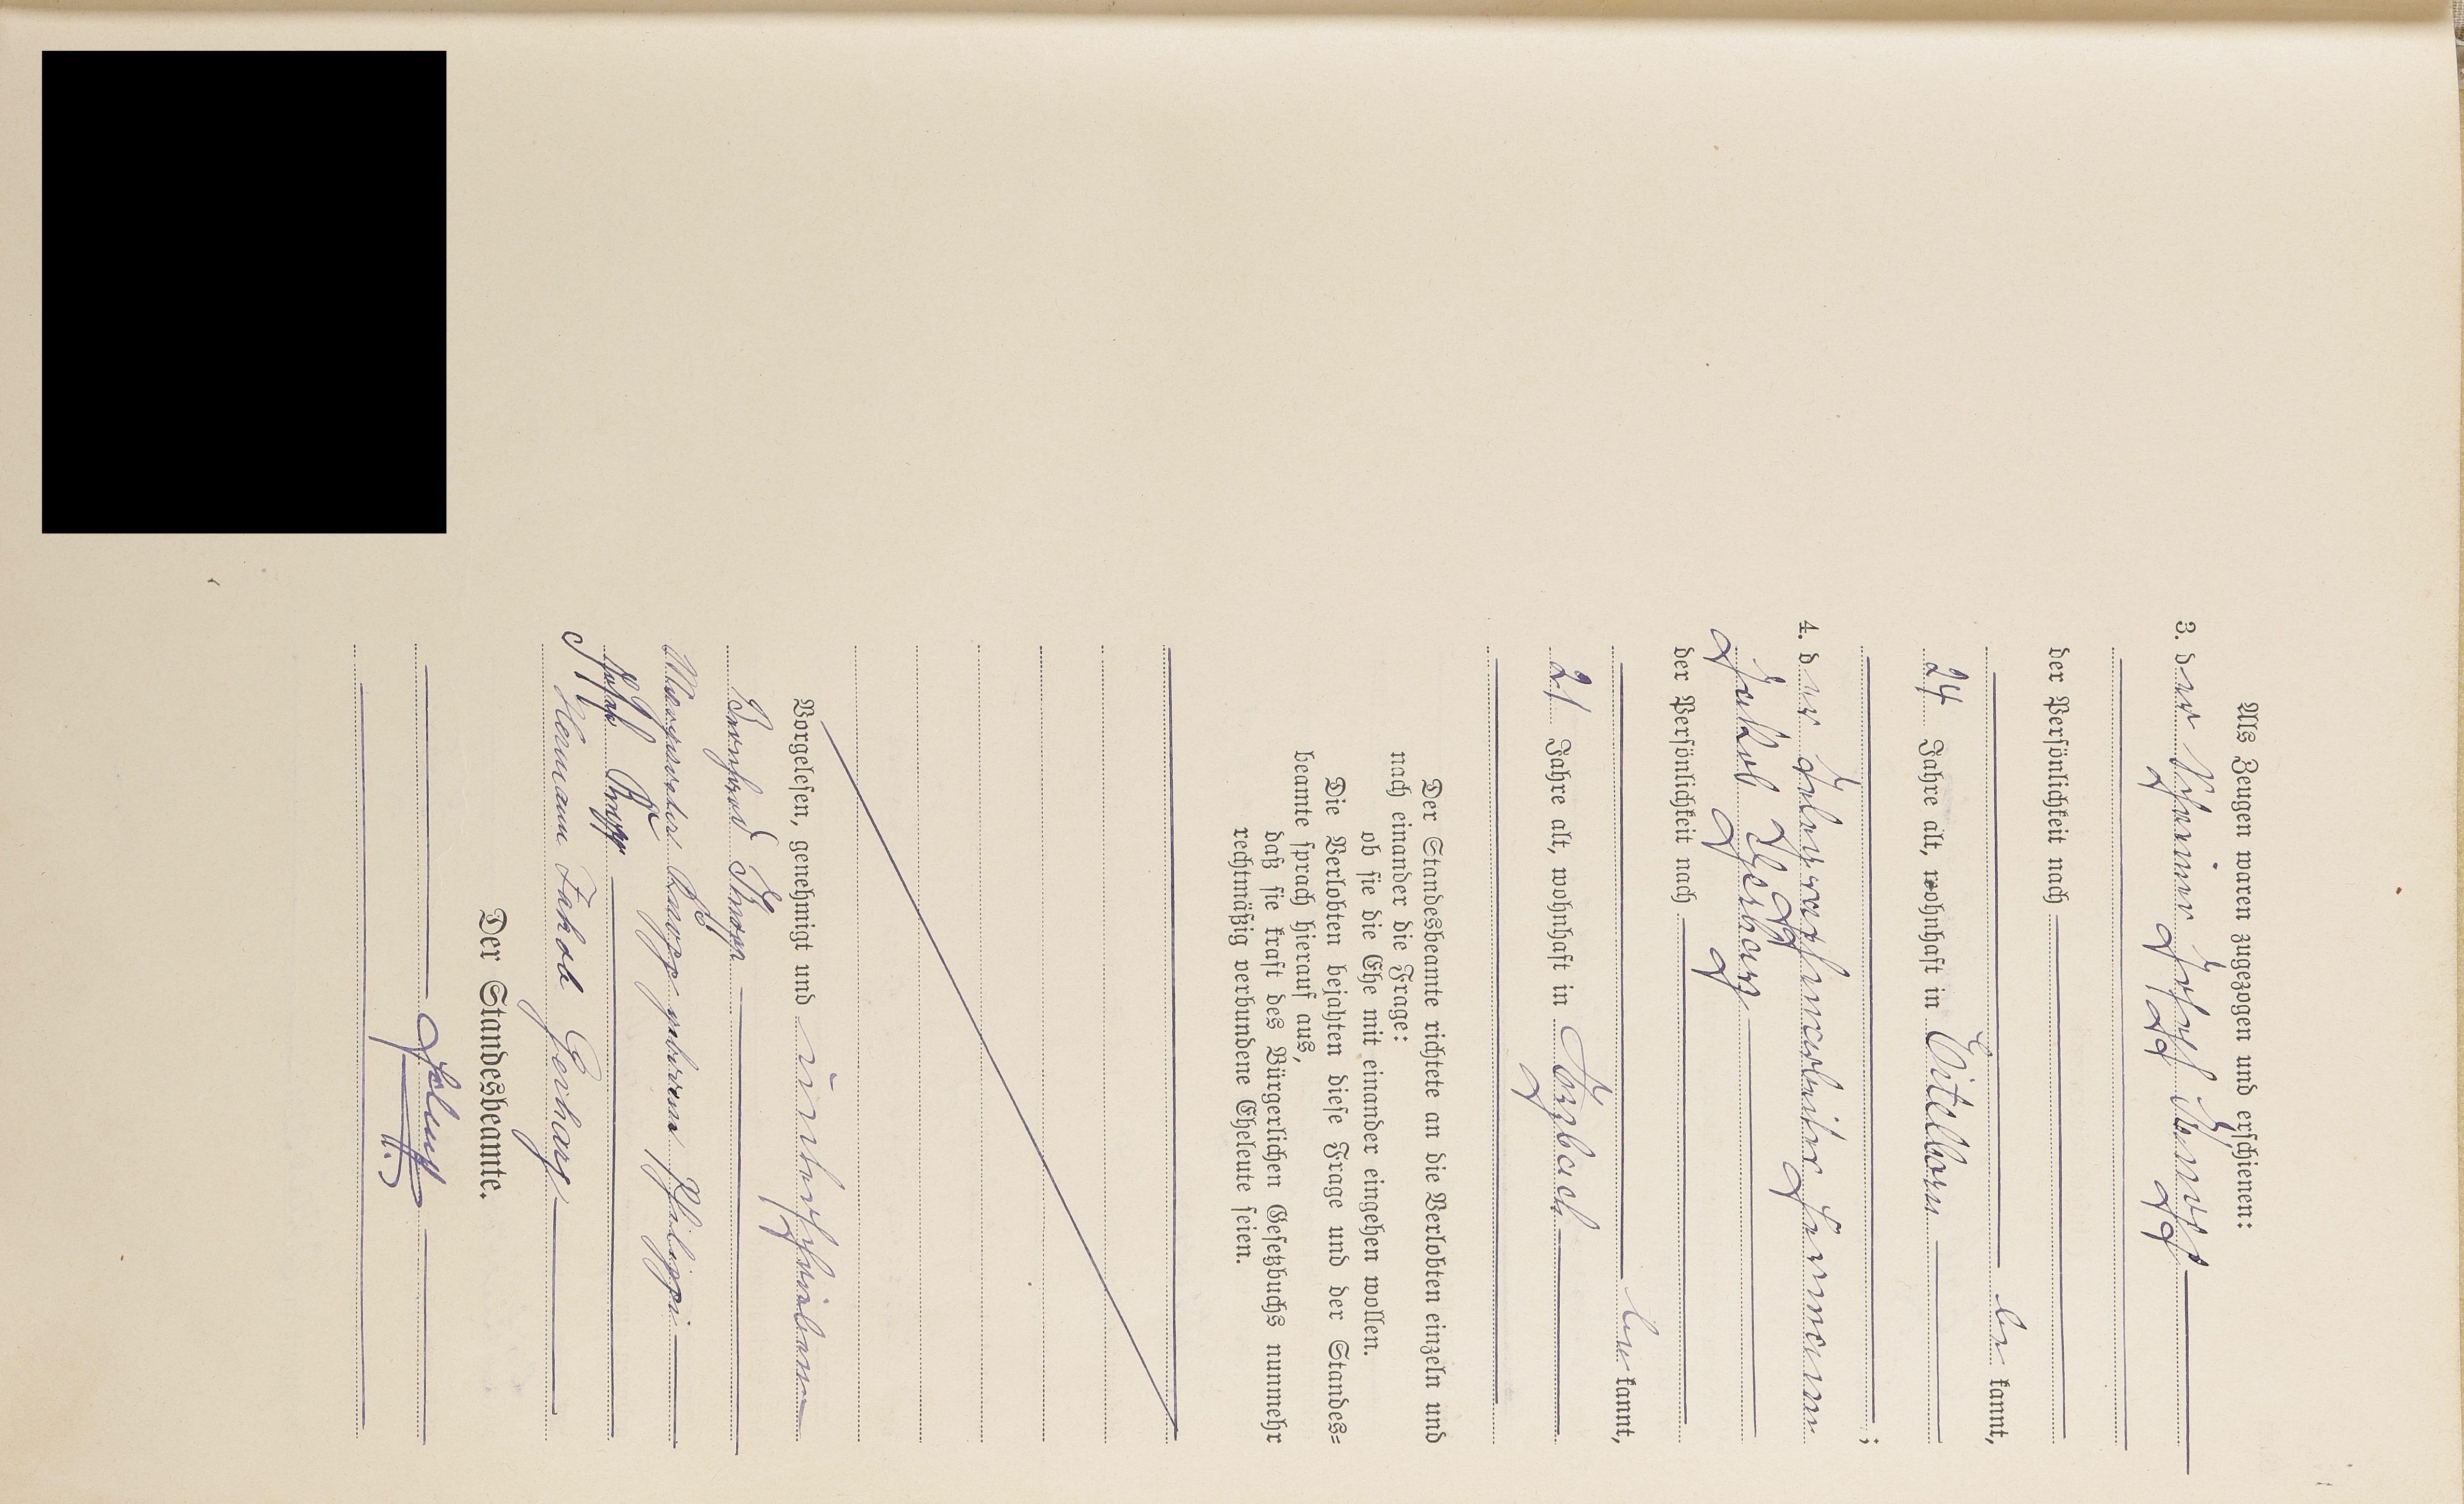 Als Zeugen waren zugezogen und erschienen:
3. der Schreiner Joseph
der Persönlichkeit nach
be kannt,
24 Jahre alt, wohnhaft in Eitelborn
;
4. der Hermann
Jakob Gerharz
der Persönlichkeit nach
be kannt,
21 Jahre alt, wohnhaft in Arzbach
Der Standesbeamte richtete an die Verlobten einzeln und
nach einander die Frage:
ob sie die Ehe mit einander eingehen wollen.
Die Verlobten bejahten diese Frage und der Standes=
beamte sprach hierauf aus,
daß sie kraft des Bürgerlichen Gesetzbuchs nunmehr
rechtmäßig verbundene Eheleute seien.
Vorgelesen, genehmigt und unterschrieben
Bernhard Knopp
Margaretha Knopp geborene Philippi
Josef
Hermann Jakob Gerharz
Der Standesbeamte.